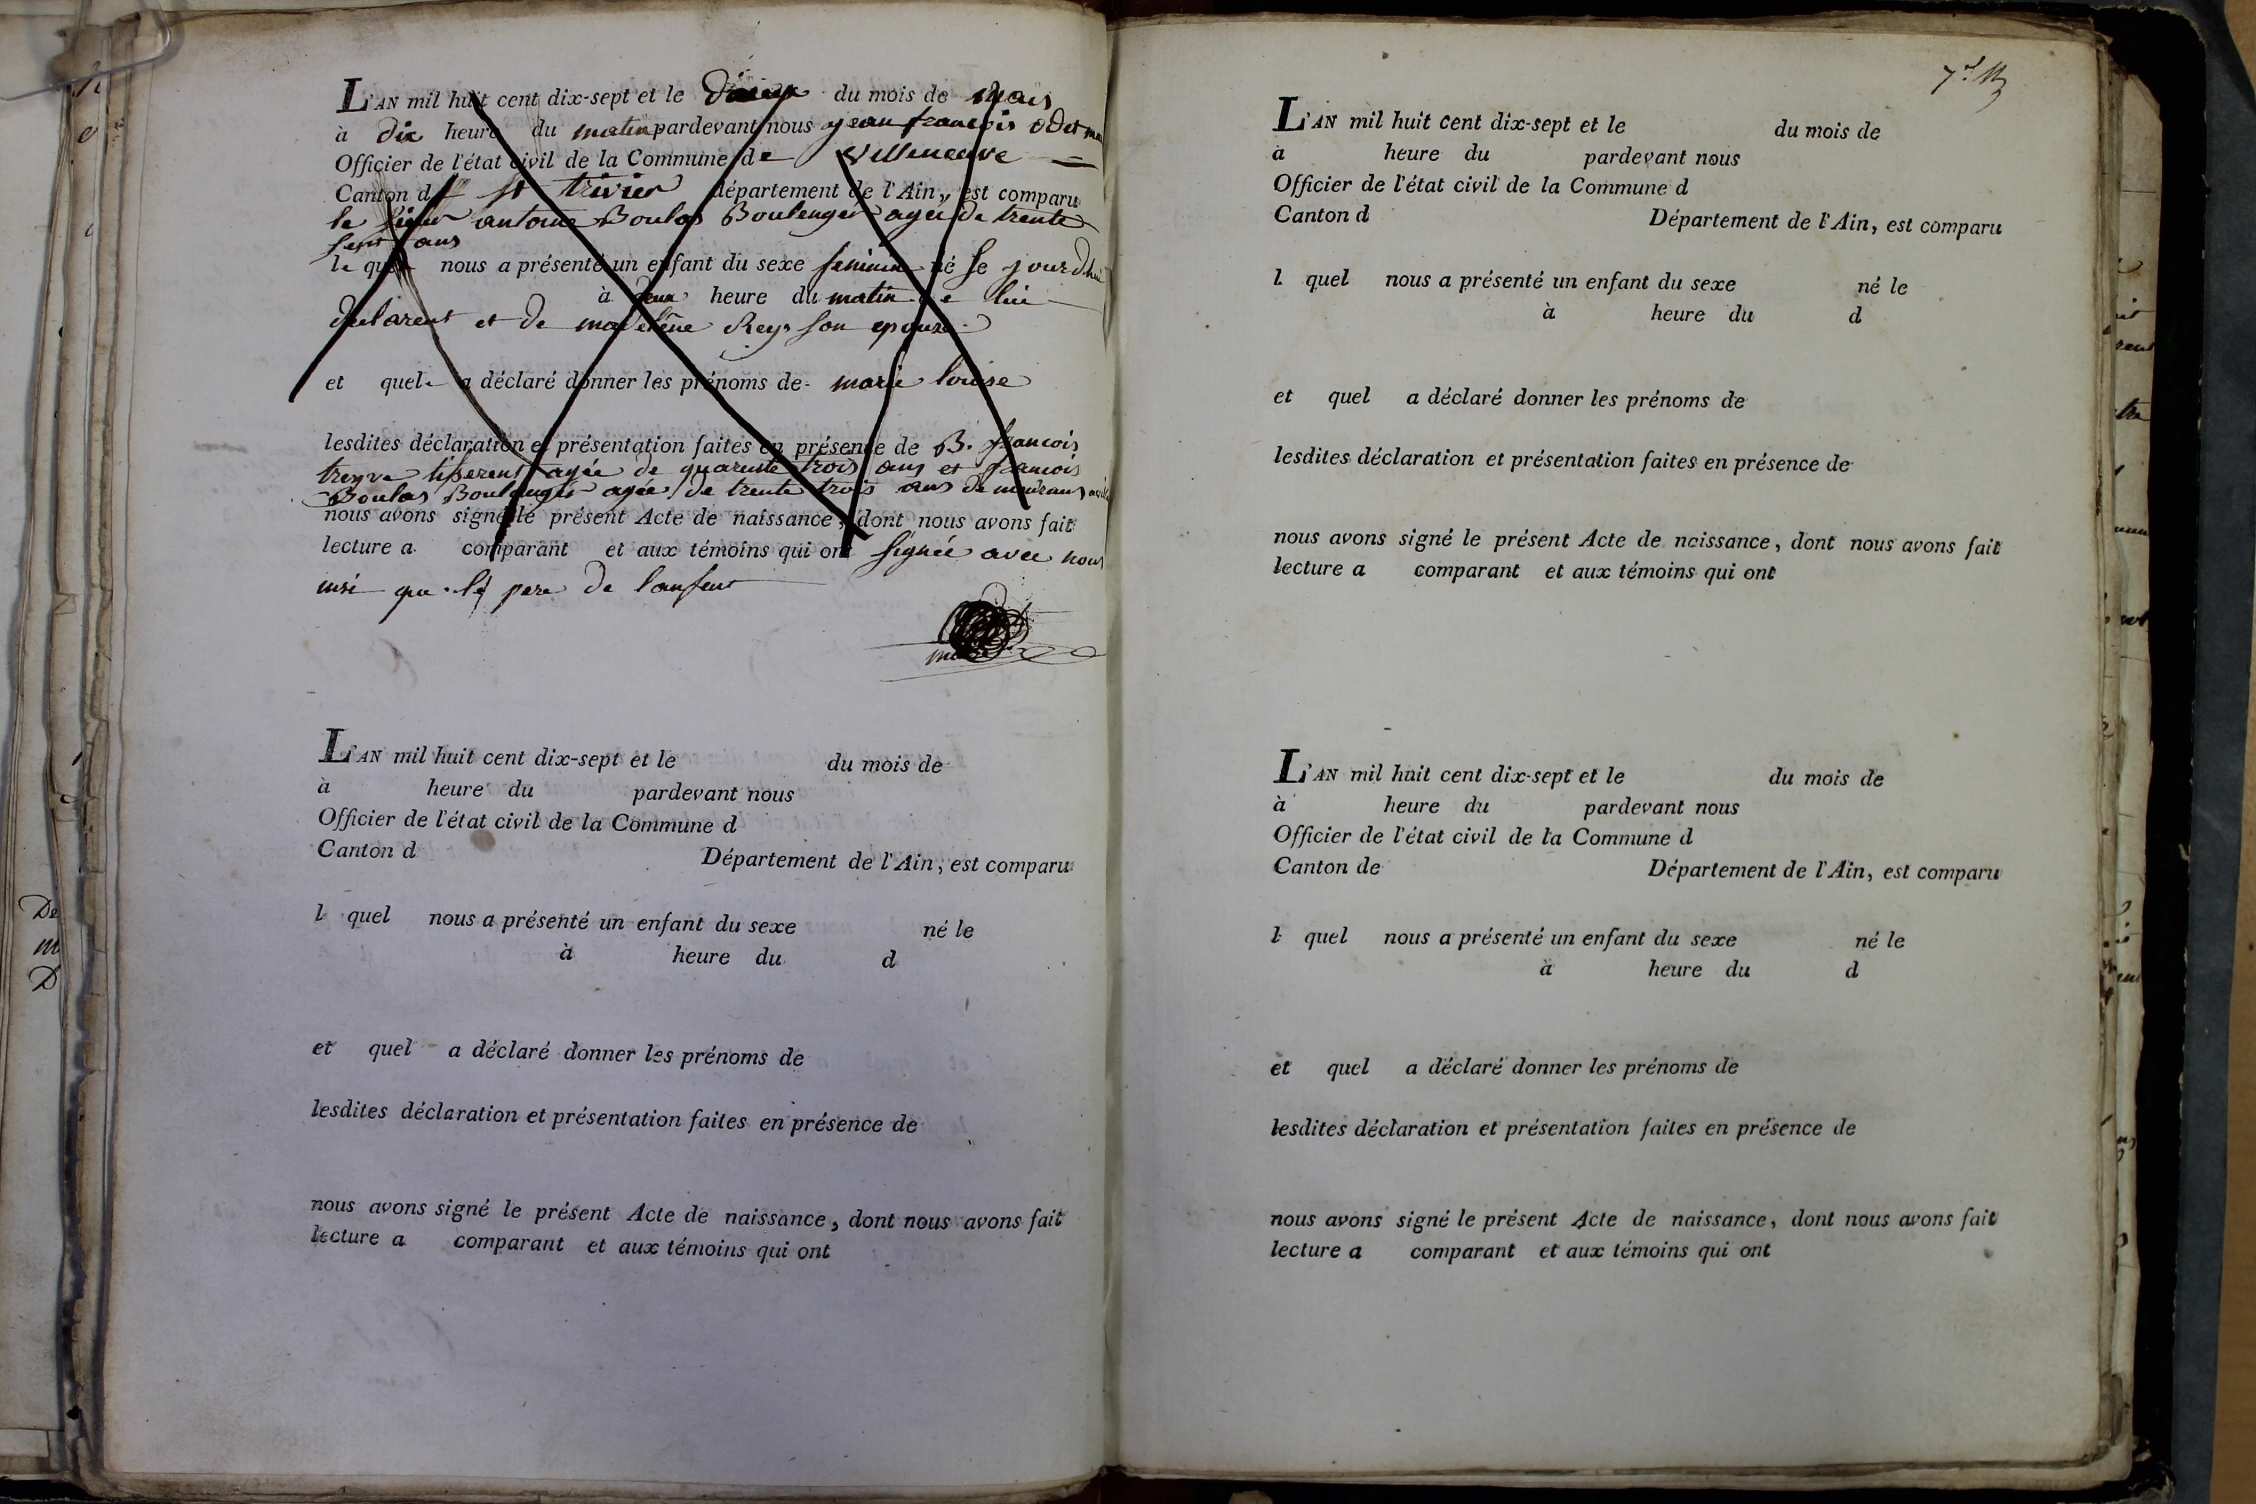 L'AN mil huit cent dix-sept et le du mois de mars
à dix heure du matin pardevant nous jean françois odet
Officier de l'état civil de la Commune de Villeneuve
Canton de st trivier département de l'Ain, est comparu
le sieur antoine Boulas Boulenger agée de trente
sept ans
le quel nous a présenté un enfant du sexe feminin né se jourdhui
à deux heure du matin de lui
declarent et de madeléne Rey son epouse
et quel a déclaré donner les prénoms de marie louise
lesdites déclaration et présentation faites en présence de B. francois
treyve tisserent agée de quarente trois ans et francois
Boulas Boulenger agée de trente trois ans demeurans
nous avons signé le présent Acte de naissance, dont nous avons fait
lecture a comparant et aux témoins qui ont signée avec nous
insi que le pere de lanfent
L'AN mil huit cent dix-sept et le du mois de
à heure du pardevant nous
Officier de l'état civil de la Commune d
Canton d Département de l'Ain, est comparu
l quel nous a présenté un enfant du sexe né le
à heure du d
et quel a déclaré donner les prénoms de
lesdites déclaration et présentation faites en présence de
nous avons signé le présent Acte de naissance, dont nous avons fait
lecture a comparant et aux témoins qui ont
L'AN mil huit cent dix-sept et le du mois de
à heure du pardevant nous
Officier de l'état civil de la Commune d
Canton d Département de l'Ain, est comparu
l quel nous a présenté un enfant du sexe né le
à heure du d
et quel a déclaré donner les prénoms de
lesdites déclaration et présentation faites en présence de
nous avons signé le présent Acte de naissance, dont nous avons fait
lecture a comparant et aux témoins qui ont
L'AN mil huit cent dix-sept et le du mois de
à heure du pardevant nous
Officier de l'état civil de la Commune d
Canton de Département de l'Ain, est comparu
l quel nous a présenté un enfant du sexe né le
à heure du d
et quel a déclaré donner les prénoms de
lesdites déclaration et présentation faites en présence de
nous avons signé le présent Acte de naissance, dont nous avons fait
lecture a comparant et aux témoins qui ont